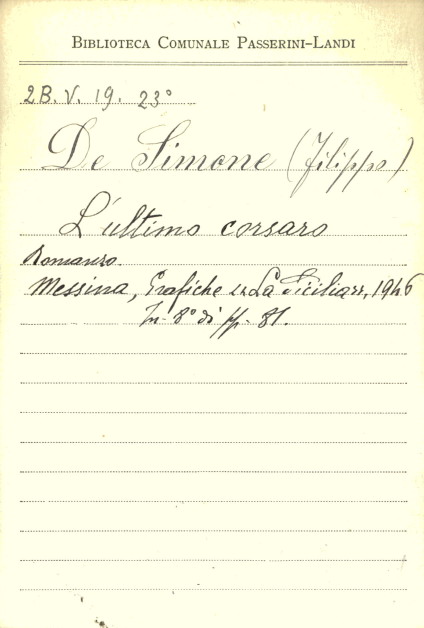 BIBLIOTECA COMUNALE PASSERINI-LANDI
2B. V. 19. 23°
De Simone (Filippo)
L'ultimo corsaro
Romanzo.
Messina, Grafiche "La Sicilia", 1946
In-8° di pp. 81.